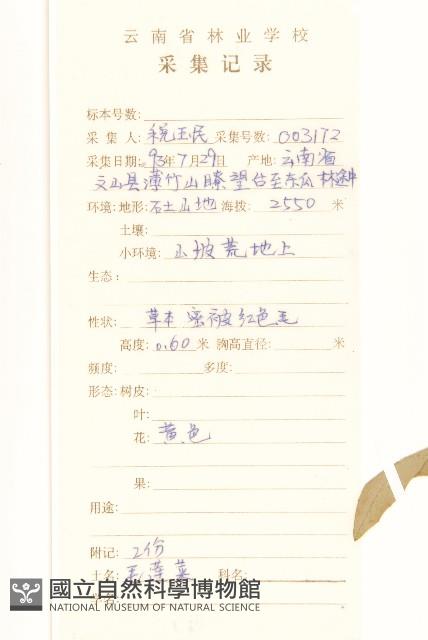 云南省林业学校
采集记录
标本号数:
采集人: 税玉民 采集号数: 003172
采集日期: 93年7月29日 产地: 云南省
文山县薄竹山瞭望台至东瓜林途中
环境: 地形: 石土山地 海拨: 2550 米
土壤:
小环境: 山坡荒地上
生态:
性状: 草本 密被红色毛
高度: 0.60 米 胸高直径: 米
频度: 多度:
形态: 树皮:
叶:
花: 黄色
果:
用途:
附记: 2份
土名: 毛莲菜 科名:
國立自然科學博物館
NATIONAL MUSEUM OF NATURAL SCIENCE